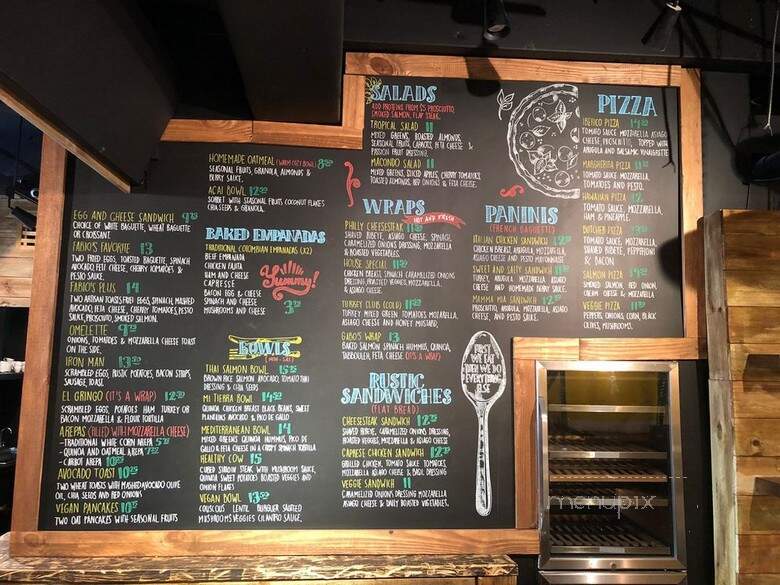 EGG AND CHEESE SANDWICH
CHOICE OF WHITE BAGUETTE, WHEAT BAGUETTE
OR CROISSANT
FABIO'S FAVORITE 13
TWO FRIED EGGS, TOASTED BAGUETTE, SPINACH
AVOCADO, FETA CHEESE, CHERRY TOMATOES &
PESTO SAUCE
FABIO'S PLUS 14
TWO ARTISAN TOASTS, FRIED EGGS, SPINACH, MASHED
AVOCADO, FETA CHEESE, CHERRY TOMATOES, PESTO
SAUCE, PROSCIUTTO, SMOKED SALMON.
OMELETTE
ONIONS, TOMATOES & MOZZARELLA CHEESE TOAST
ON THE SIDE.
IRON MAN
SCRAMBLED EGGS, RUSTIC POTATOES, BACON STRIPS,
SAUSAGE, TOAST.
EL GRINGO (IT'S A WRAP)
SCRAMBLED EGGS, POTATOES HAM TURKEY OR
BACON MOZZARELLA & FLOUR TORTILLA
AREPAS (FILLED WITH MOZZARELLA CHEESE)
- TRADITIONAL WHITE CORN AREPA
- QUINOA AND OATMEAL AREPA
- CARROT AREPA
AVOCADO TOAST
TWO WHEAT TOASTS WITH MASHED AVOCADO OLIVE
OIL, CHIA SEEDS AND RED ONIONS
VEGAN PANCAKES
TWO OAT PANCAKES WITH SEASONAL FRUITS
HOMEMADE OATMEAL (WARM COZY BOWL)
SEASONAL FRUITS, GRANOLA, ALMONDS &
BERRY SAUCE
ACAI BOWL
SORBET WITH SEASONAL FRUITS COCONUT FLAKES
CHIA SEEDS & GRANOLA
BAKED EMPANADAS
TRADITIONAL COLOMBIAN EMPANADAS (X2)
BEEF EMPANADA
CHICKEN FAJITA
HAM AND CHEESE
CAPRESSE
BACON EGG & CHEESE
SPINACH AND CHEESE
MUSHROOMS AND CHEESE
Yummy!
BOWLS
THAI SALMON BOWL
BROWN RICE SALMON AVOCADO, TOMATO THAI
DRESSING & CHIA SEEDS
MI TIERRA BOWL
QUINOA, CHICKEN BREAST, BLACK BEANS, SWEET
PLANTAINS AVOCADO & PICO DE GALLO
MEDITERRANEAN BOWL 14
MIXED GREENS QUINOA HUMMUS, PICO DE
GALLO & FETA CHEESE IN A CRISPY SPINACH TORTILLA
HEALTHY COW 15
CUBED SIRLOIN STEAK WITH MUSHROOM SAUCE,
QUINOA, SWEET POTATOES ROASTED VEGGIES AND
ONION FLAKES
VEGAN BOWL
COUSCOUS LENTIL BURGUER SAUTEED
MUSHROOMS VEGGIES CILANTRO SAUCE.
SALADS
ADD PROTEINS FROM $5 PROSCIUTTO,
SMOKED SALMON, FLAP STEAK.
TROPICAL SALAD 11
MIXED GREENS, ROASTED ALMONDS,
SEASONAL FRUITS, CARROTS, FETA CHEESE &
PASSION FRUIT DRESSING.
MACONDO SALAD 11
MIXED GREENS, SLICED APPLES, CHERRY TOMATOES
TOASTED ALMONDS, RED ONIONS & FETA CHEESE.
WRAPS
HOT AND FRESH
PHILLY CHEESESTEAK
SHAVED RIBEYE, ASIAGO CHEESE, SPINACH,
CARAMELIZED ONIONS DRESSING, MOZZARELLA
& ROASTED VEGGIES
HOUSE SPECIAL
CHICKEN BREAST, SPINACH CARAMELIZED ONIONS
DRESSING, ROASTED VEGGIES, MOZZARELLA,
& ASIAGO CHEESE
TURKEY CLUB (COLD)
TURKEY MIXED GREEN TOMATOES, MOZZARELLA,
ASIAGO CHEESE AND HONEY MUSTARD,
GABO'S WRAP 13
BAKED SALMON SPINACH HUMMUS, QUINOA,
TABBOULEH, FETA CHEESE (IT'S A WRAP)
RUSTIC
SANDWICHES
(FLAT BREAD)
CHEESESTEAK SANDWICH
SHAVED RIBEYE, CARAMELIZED ONIONS DRESSING,
ROASTED VEGGIES, MOZZARELLA & ASIAGO CHEESE
CAPRESE CHICKEN SANDWICH
GRILLED CHICKEN, TOMATO SAUCE, TOMATOES,
MOZZARELLA ASIAGO CHEESE & BASIL DRESSING
VEGGIE SANDWICH 11
CARAMELIZED ONIONS DRESSING MOZZARELLA
ASIAGO CHEESE & DAILY ROASTED VEGETABLES.
PANINIS
(FRENCH BAGUETTE)
ITALIAN CHICKEN SANDWICH
CHICKEN BREAST, ARUGULA, MOZZARELLA,
ASIAGO CHEESE AND PESTO MAYONNAISE
SWEET AND SALTY SANDWICH
TURKEY HAM, ARUGULA, MOZZARELLA, ASIAGO
CHEESE AND HOMEMADE ONION JAM
MAMMA MIA SANDWICH
PROSCIUTTO, ARUGULA, MOZZARELLA, ASIAGO
CHEESE, AND PESTO SAUCE.
FIRST
WE EAT
THEN WE DO
EVERYTHING
ELSE
PIZZA
IBERICO PIZZA
TOMATO SAUCE MOZZARELLA ASIAGO
CHEESE, PROSCIUTTO, TOPPED WITH
ARUGULA AND BALSAMIC VINAIGRETTE
MARGHERITA PIZZA
TOMATO SAUCE, MOZZARELLA,
TOMATOES AND PESTO.
HAWAIIAN PIZZA
TOMATO SAUCE, MOZZARELLA,
HAM & PINEAPPLE.
BUTCHER PIZZA
TOMATO SAUCE, MOZZARELLA
SHAVED RIBEYE, PEPPERONI
& BACON
SALMON PIZZA
SMOKED SALMON, RED ONION,
CREAM CHEESE, AND MOZZARELLA
VEGGIE PIZZA
PEPPERS, ONIONS, CORN, BLACK
OLIVES, MUSHROOMS.
menupix